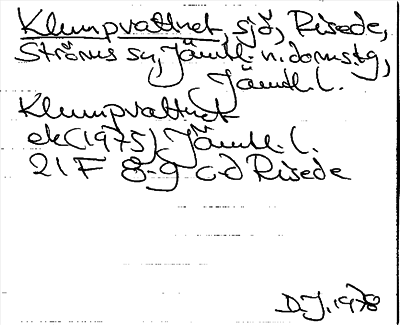 Klumpvattnet, sjö, Risede,
Ströms sn, Jämtl. n. domstg,
Jämtl. l.
Klumpvattnet
ek (1975) Jämtl. l.
21F 8-9 c-d Risede
D.J. 1978